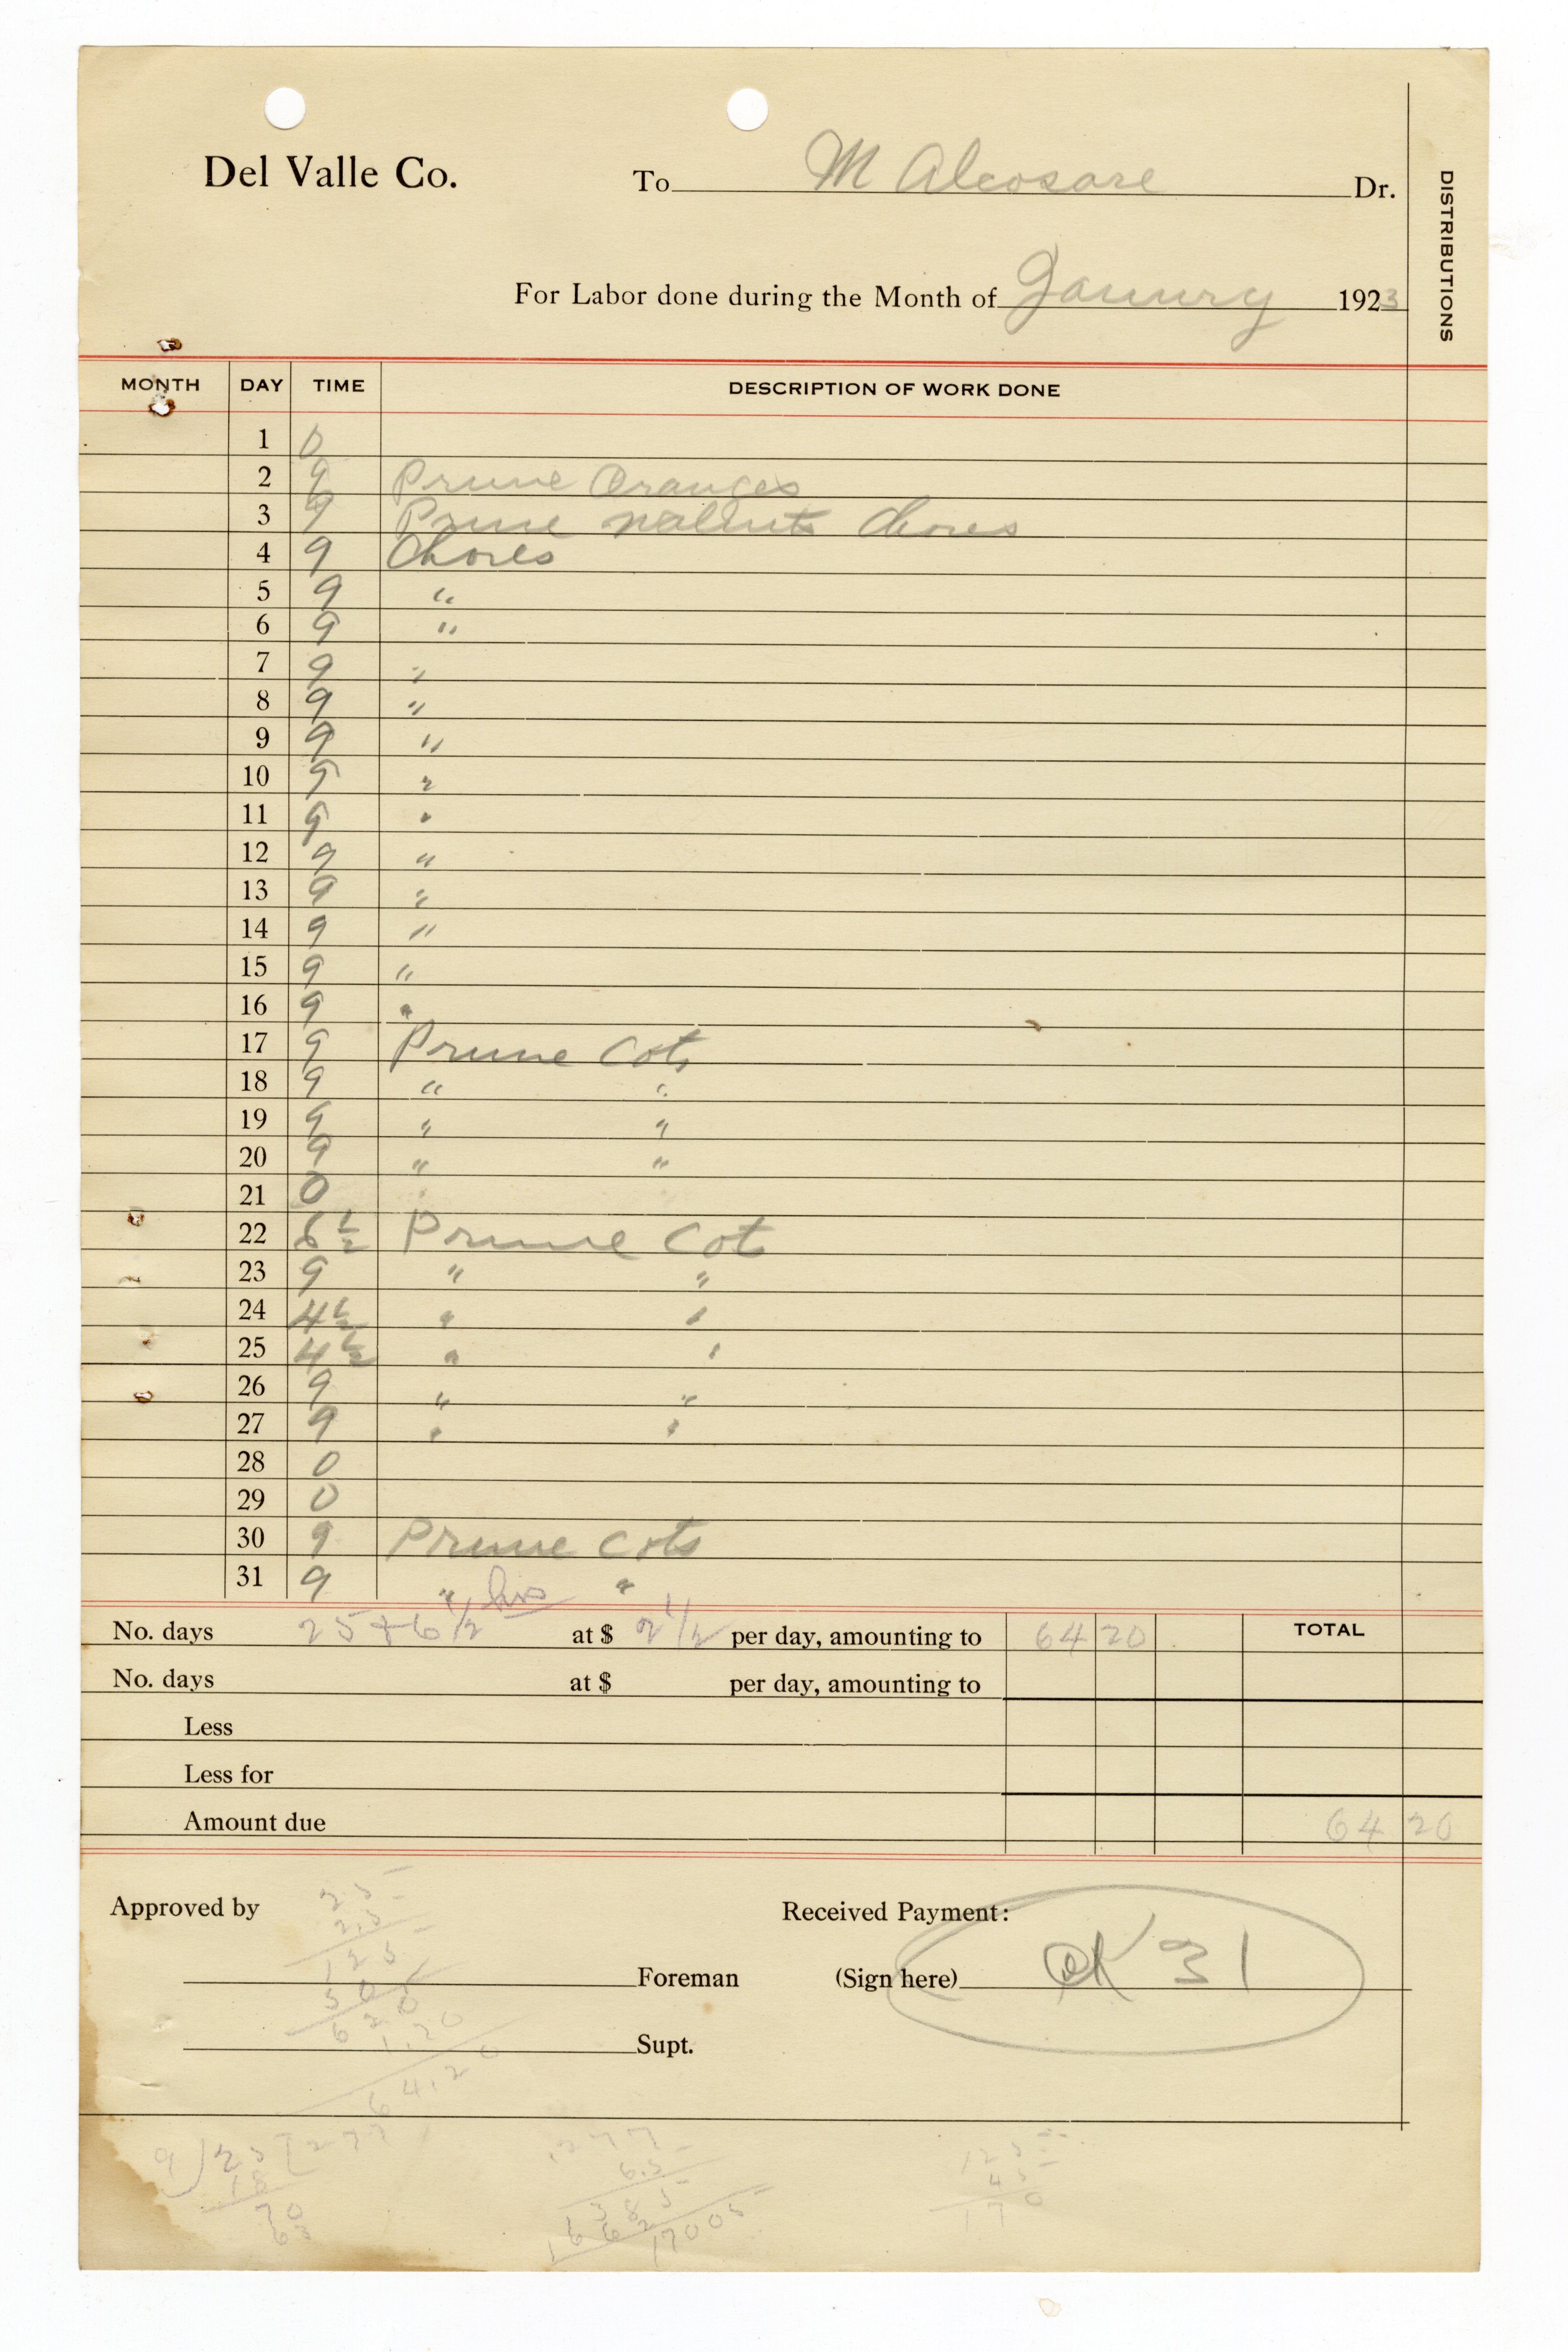 Del Valle Co. To M Alcosare Dr.
DISTRIBUTIONS
For Labor done during the Month of Janury 1923
MONTH DAY TIME DESCRIPTION OF WORK DONE
1 0
2 9 Prune Oranges
3 9 Prune walnuts Chores
4 9 Chores
5 9 "
6 9 "
7 9 "
8 9 "
9 9 "
10 9 "
11 9 "
12 9 "
13 9 "
14 9 "
15 9 "
16 9 "
17 9 Prune Cots
18 9 " "
19 9 " "
20 9 " "
21 0
22 6 1/2 Prune Cot
23 9 " "
24 4 1/2 " "
25 4 1/2 " "
26 9 " "
27 9 " "
28 0
29 0
30 9 Prune Cots
31 9 " "
No. days 25 + 6 1/2 hrs at $ 2 1/2 per day, amounting to 64 20 TOTAL
No. days at $ per day, amounting to
Less
Less for
Amount due 64 20
Approved by Received Payment:
Foreman (Sign here) OK 31
Supt.
25
2.5
125
500
62.0
1.20
64.20
9)25[277
18
70
63
.277
6.5
1385
1662
17005
125
45
170